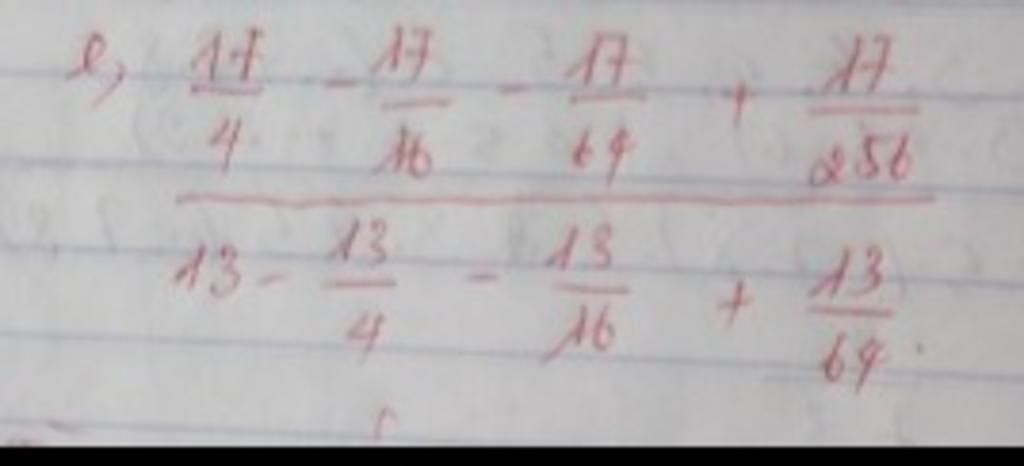 e, 17/4 - 17/16 - 17/64 + 17/256
13 - 13/4 - 13/16 + 13/64